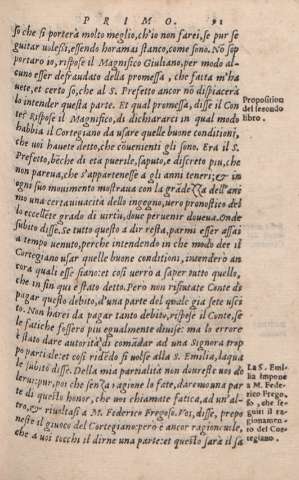 PRIMO. 91
so che si porterà molto meglio, ch'io non farei, se pur se
guitar volessi, essendo horamai stanco, come sono. Nõ sop
portarò io, rispose il Magnifico Giuliano, per modo al-
cuno esser defraudato della promessa, che fatta m'ha
uete, et certo so, che al S. Prefetto ancor nõ dispiacerà
lo intender questa parte. Et qual promessa, disse il Con
te? Rispose il Magnifico, di dichiararci in qual modo
habbia il Cortegiano da usare quelle buone conditioni,
che voi hauete detto, che cõuenienti gli sono. Era il S.
Prefetto, bẽche di età puerile, saputo, e discreto piu, che
non pareua, che s'appartenesse a gli anni teneri; & in
ogni suo movimento mostraua con la grãdezza dell'ani
mo una certa viuacità dello ingegno, vero pronostico del
lo eccellẽte grado di virtù, doue peruenir doueua. Onde
subito disse. Se tutto questo a dir resta, parmi esser assai
a tempo venuto, perche intendendo in che modo dee il
Cortegiano usar quelle buone conditioni, intenderò an
cora quali esse siano: et così verrò a saper tutto quello,
che in fin qui è stato detto. Però non rifiutate Conte di
pagar questo debito, d'una parte del quale gia sete usci
to. Non harei da pagar tanto debito, rispose il Conte, se
le fatiche fossero piu egualmente diuise: ma lo errore
è stato dare autorità di comãdar ad una Signora trop
po partiale: et così ridẽdo si uolse alla S. Emilia, laqua
le subito disse. Della mia partialità non dovreste voi do
lerui: pur, poi che senza ragione lo fate, daremo una par
te di questo honor, che voi chiamate fatica, ad un'al-
tro, & riuoltasi a M. Federico Fregoso. Voi, disse, propo
neste il giuoco del Cortegiano: però è ancor ragioneuole,
che a voi tocchi il dirne una parte: et questo sarà il sa
Propositiõ
del secondo
libro.
La S. Emi-
lia impone
a M. Fede-
rico Frego-
so, che se-
guiti il ra-
gionamen-
to del Cor-
tegiano.